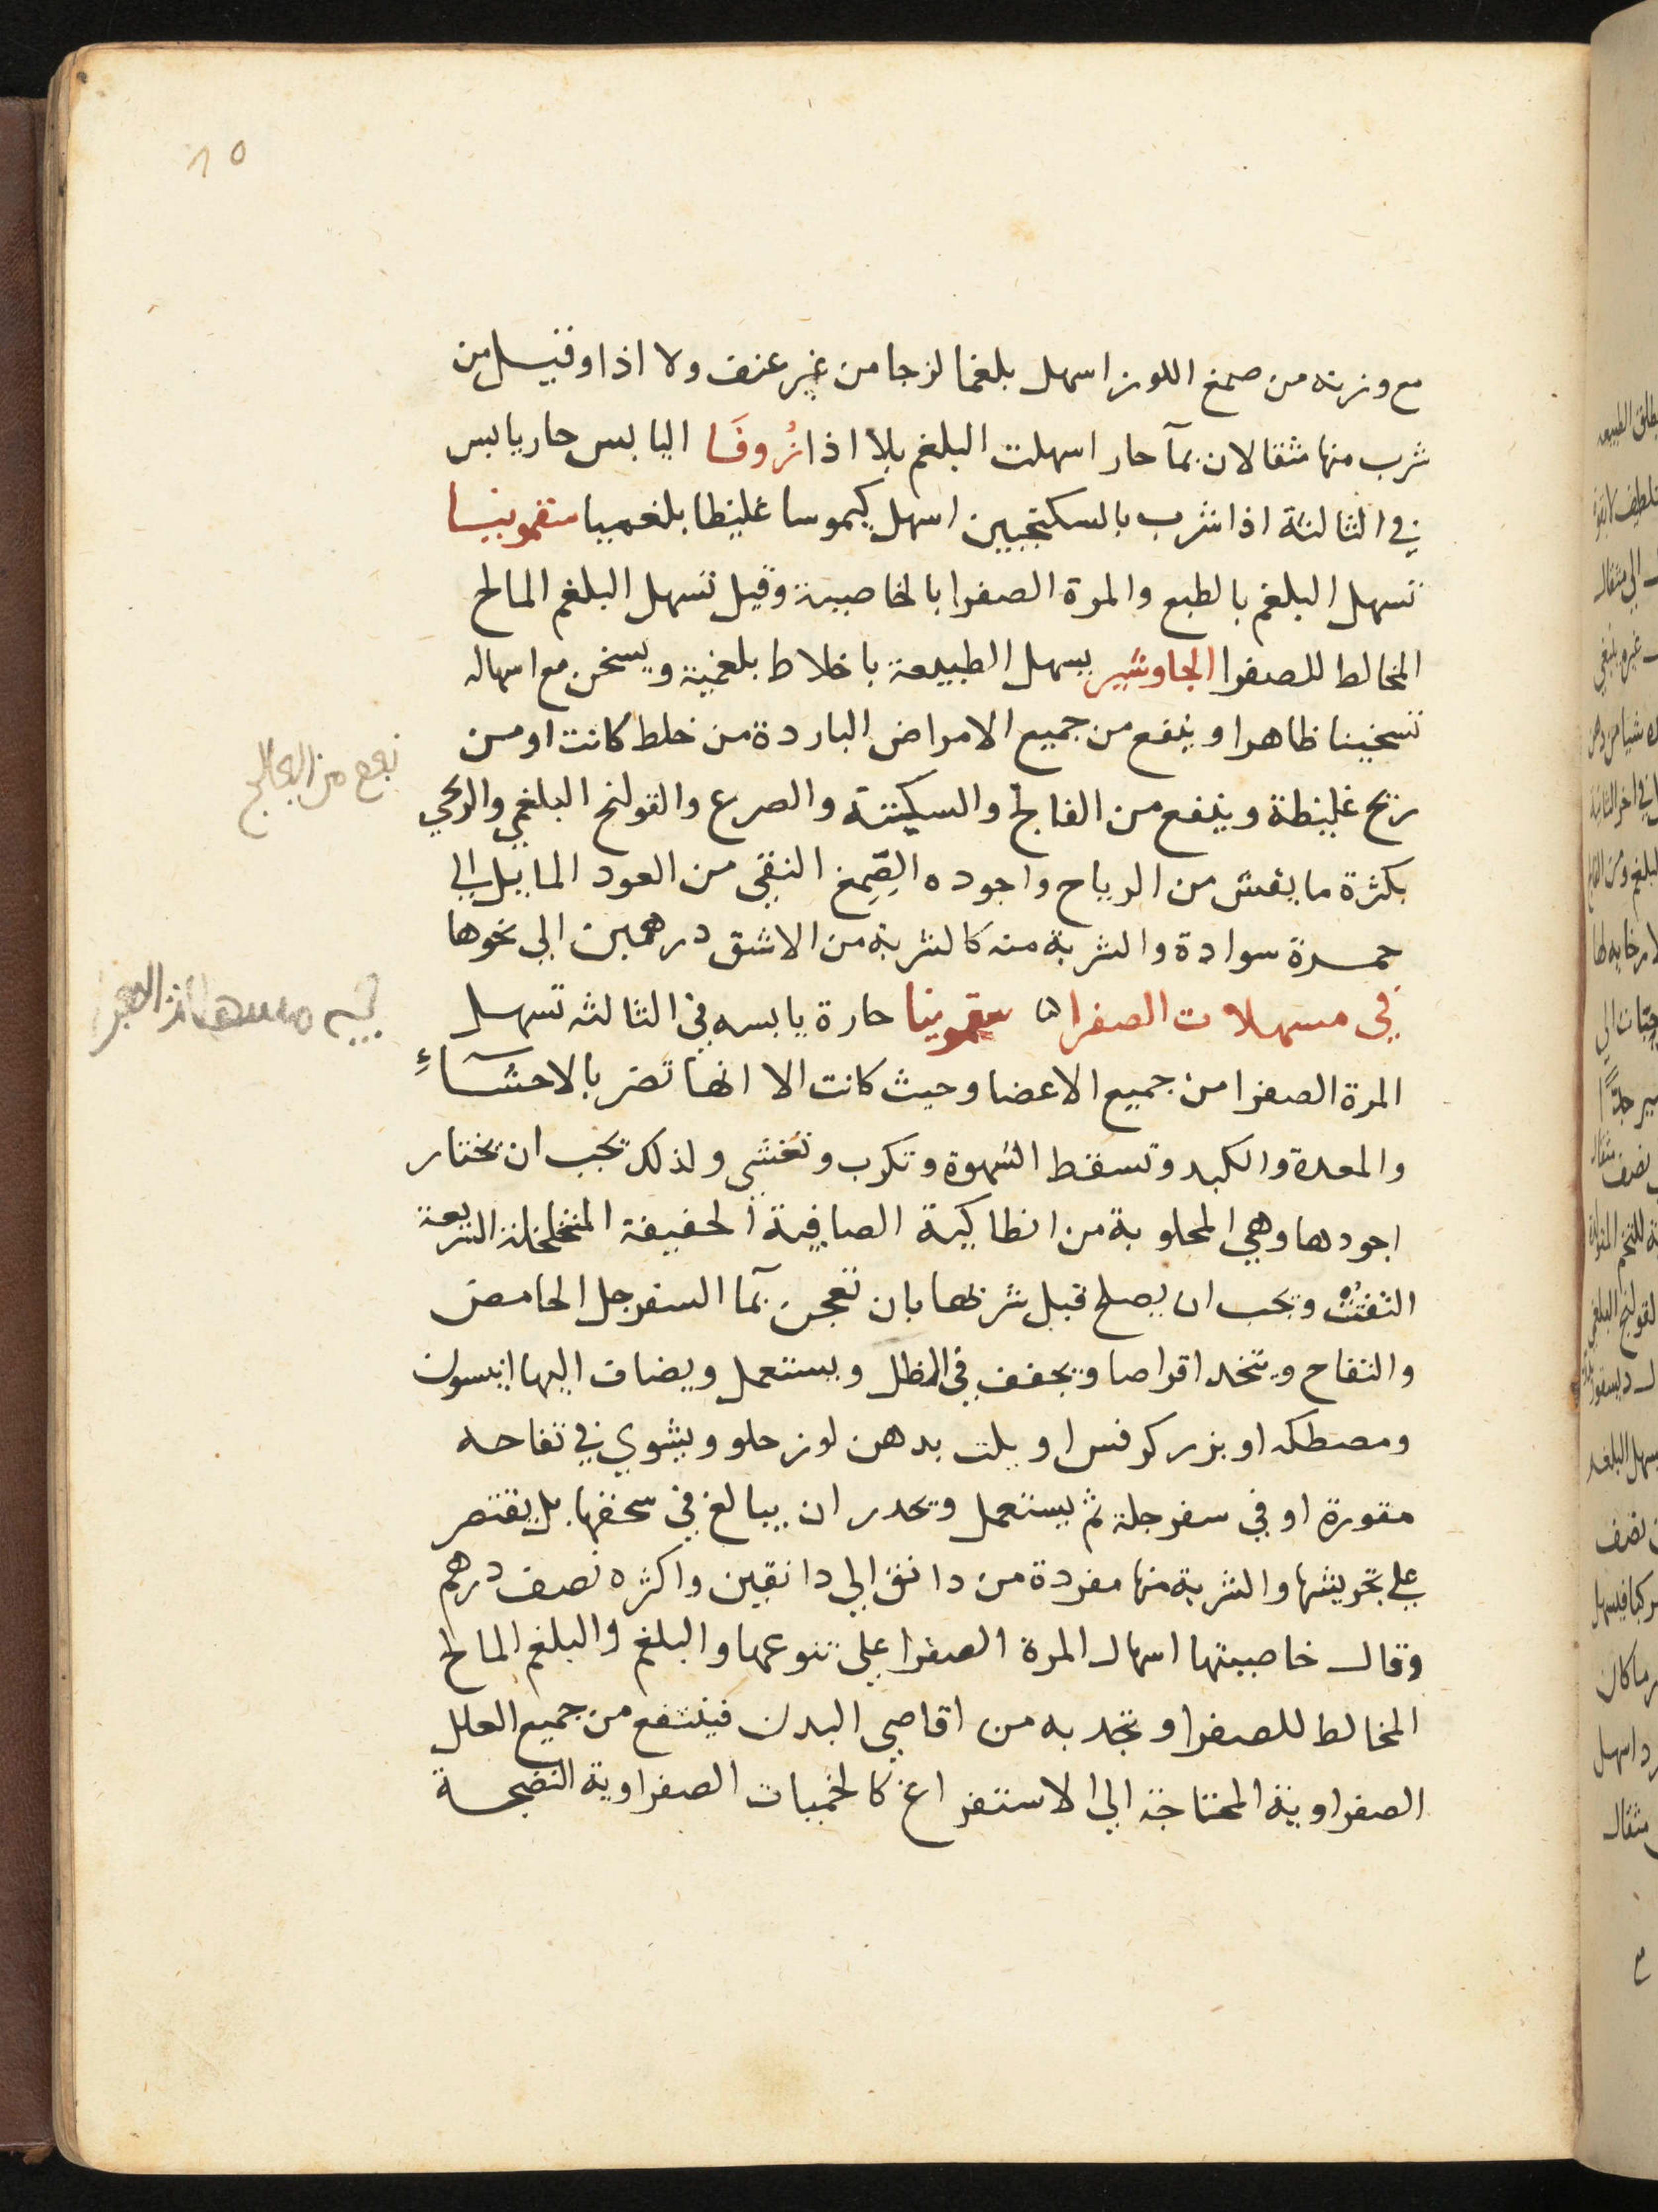 مع وزنه من صمغ اللوز اسهل بلغما لزجا من غير عنف ولا اذا وقيل من
شرب منها مثقالان بمآ حار اسهلت البلغم بلا اذا زُوفَا اليابس حار يابس
في الثالثة اذا شرب بالسكنجبين اسهل كيموسا غليظا بلغميا سقمونيا
تسهل البلغم بالطبع والمرة الصفرا بالخاصية وقيل تسهل البلغم المالح
المخالط للصفرا الجاوشير يسهل الطبيعة باخلاط بلغمية ويسخن مع اسهاله
تسخينا ظاهرا وينفع من جميع الامراض الباردة من خلط كانت او من
ريح غليظة وينفع من الفالج والسكتة والصرع والقولنج البلغمي والريحي
بكثرة ما يفش من الرياح واجوده الصمغ النقي من العود المايل الي
حمرة سوادة والشربة منه كالشربة من الاشق درهمين الي نحوها
في مسهلات الصفرا سقمونيا حارة يابسه في الثالثه تسهل
المرة الصفرا من جميع الاعضا وحيث كانت الا انها تضر بالاحشآء
والمعدة والكبد وتسقط الشهوة وتكرب وتغشي ولذلك يجب ان يختار
اجودها وهي المجلوبة من انطاكية الصافية الخفيفة المتخلخلة السريعة
التفتت ويجب ان يصلح قبل شربها بان تعجن بمآ السفرجل الحامض
والتفاح ويتخد اقراصا ويجفف في الظل ويستعمل ويضاف اليها انيسون
ومصطكه او بزر كرفس او يلت بدهن لوز حلو ويشوي في تفاحه
مقورة او في سفرجلة ثم يستعمل ويحدر ان يبالغ في سحقها بل يقتصر
علي تجريشها والشربة منها مفردة من دانق الي دانقين واكثره نصف درهم
وقال خاصيتها اسهال المرة الصفرا علي تنوعها والبلغم والبلغم المالح
المخالط للصفرا وتجدبه من اقاصي البدن فينتفع من جميع العلل
الصفراوية المحتاجة الي الاستفراغ كالحميات الصفراوية النضجة